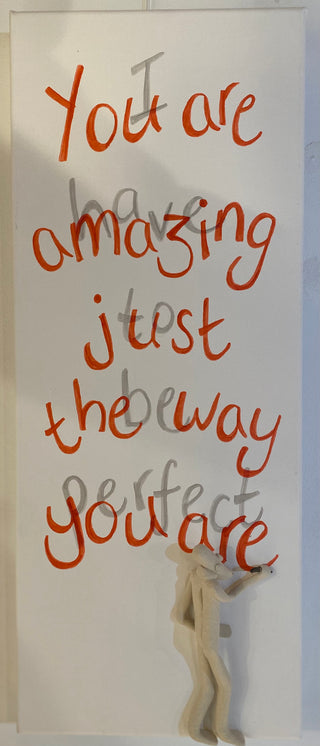 I
You are
have
amazing
to
just
be
the way
perfect
you are